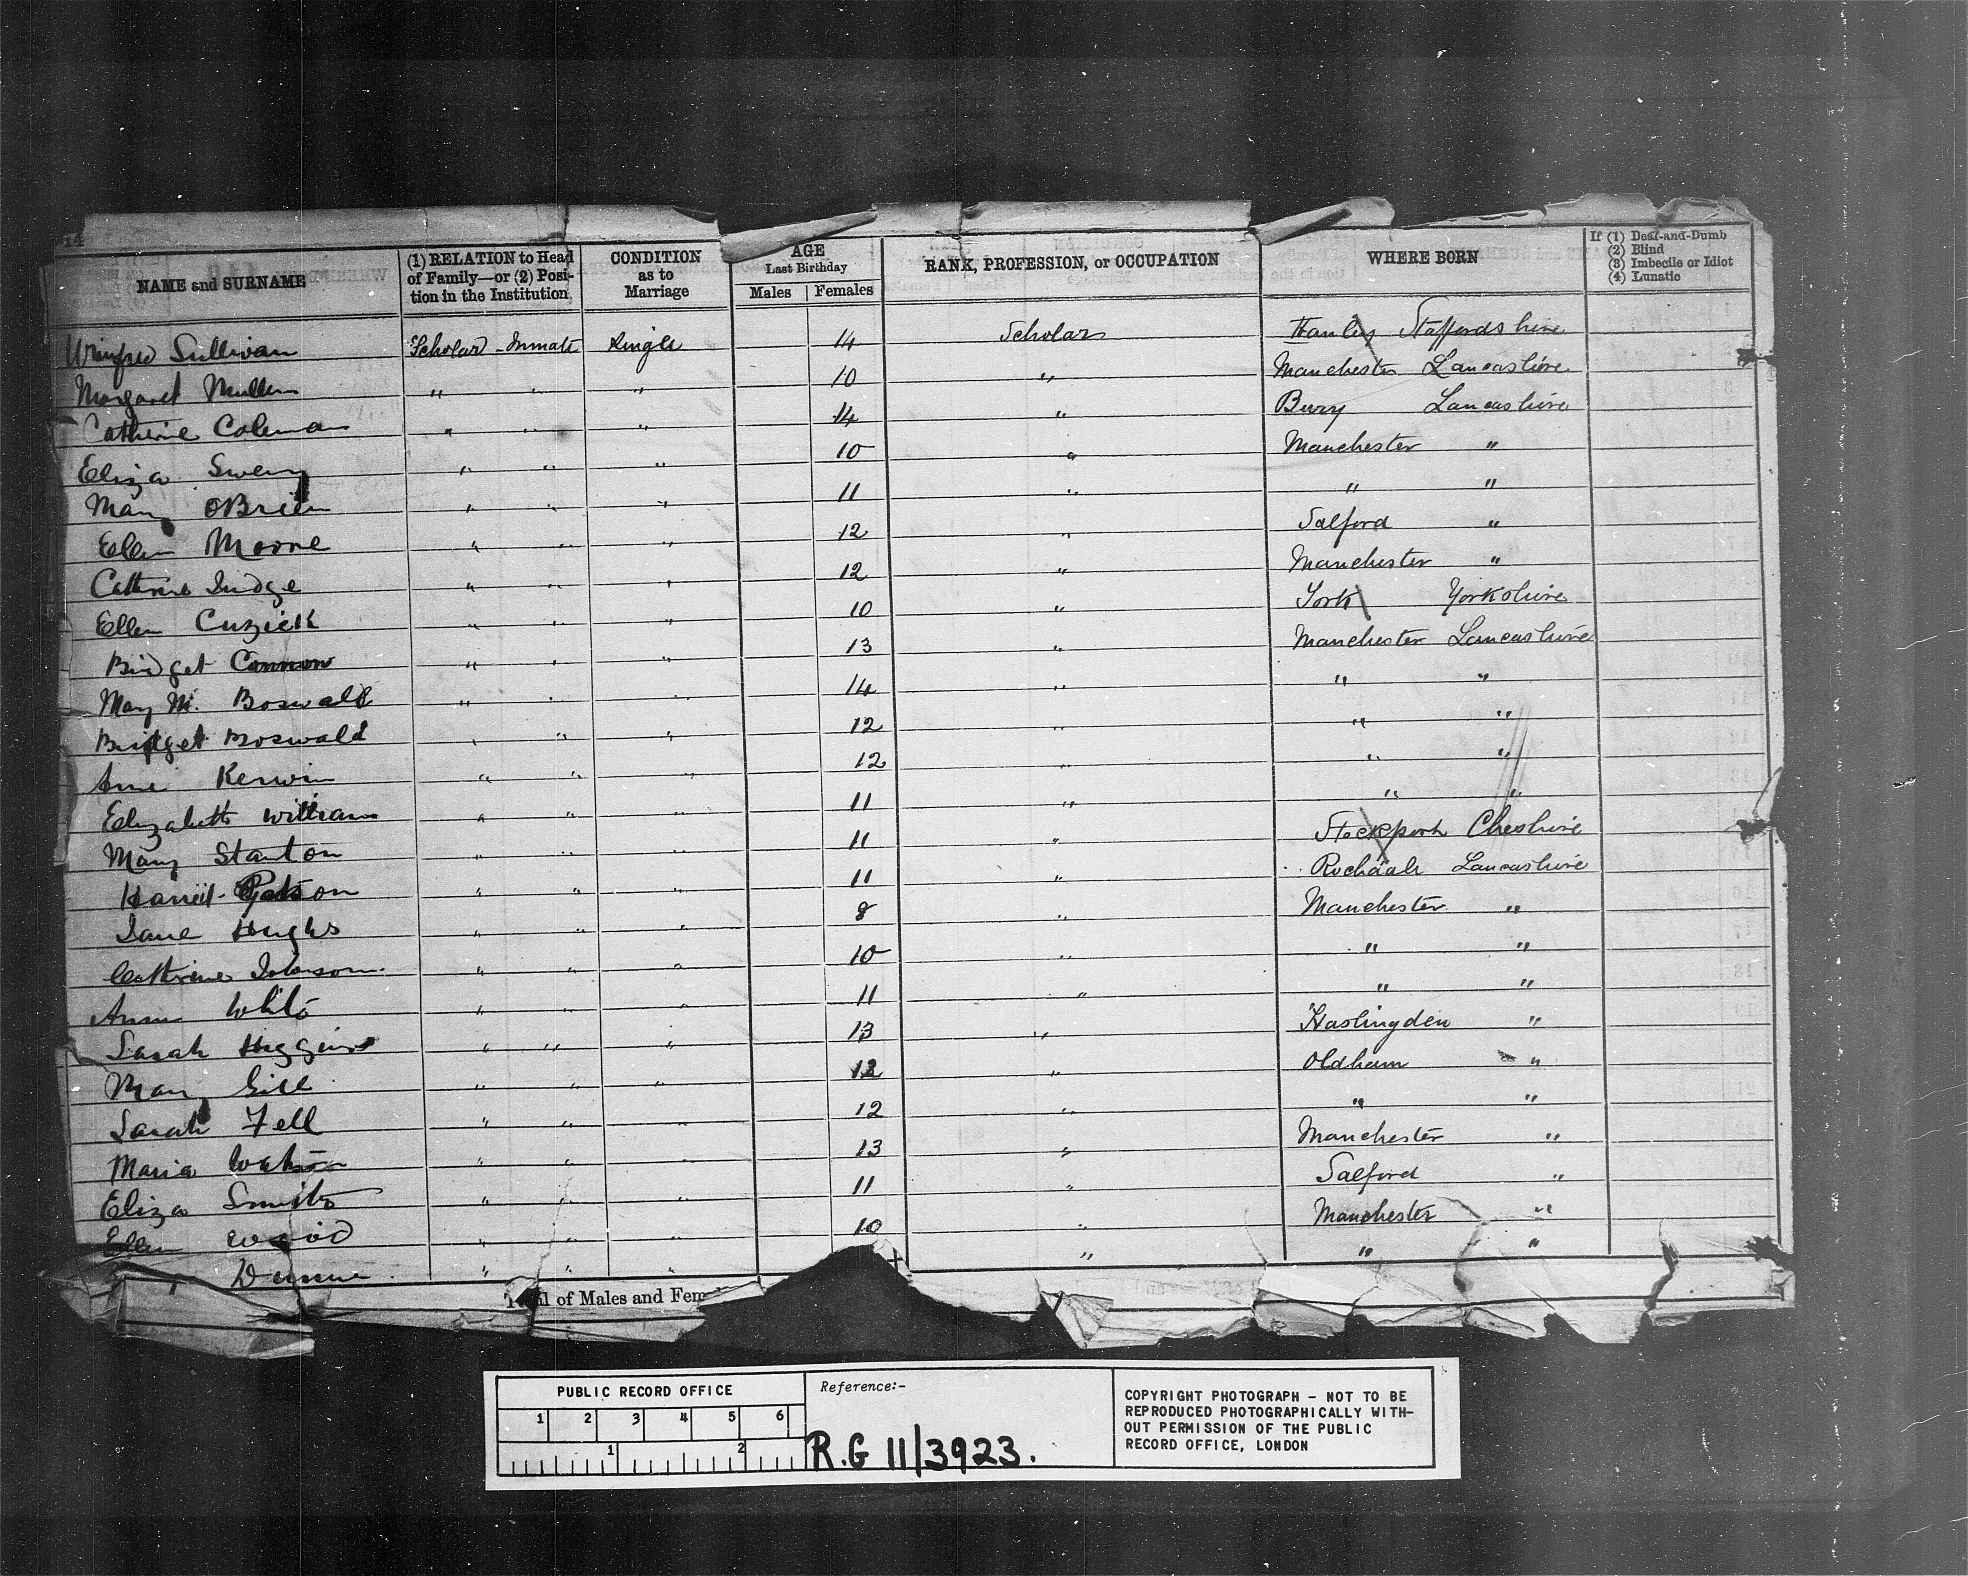 14
NAME and SURNAME
(1) RELATION to Head of Family—or (2) Position in the Institution
CONDITION as to Marriage
AGE Last Birthday
Males Females
RANK, PROFESSION, or OCCUPATION
WHERE BORN
If (1) Deaf-and-Dumb
(2) Blind
(3) Imbecile or Idiot
(4) Lunatic
Winifred Sullivan Scholar - Inmate Single 14 Scholar Hanley Staffordshire
Margaret Mullen " " " 10 " Manchester Lancashire
Catherine Coleman " " " 14 " Bury Lancashire
Eliza Sweny " " " 10 " Manchester "
Mary OBrien " " " 11 " " "
Ellen Moore " " " 12 " Salford "
Catherine Judge " " " 12 " Manchester "
Ellen Cuzick " " " 10 " York Yorkshire
Bridget Cannon " " " 13 " Manchester Lancashire
Mary M. Boswald " " " 14 " " "
Bridget Boswald " " " 12 " " "
Kerwin " " " 12 " " "
Elizabeth William " " " 11 " " "
Mary Stanton " " " 11 " Stockport Cheshire
Harriet " " " 11 " Rochdale Lancashire
Jane Hughs " " " 8 " Manchester "
Catherine Johnson " " " 10 " " "
White " " " 11 " " "
Sarah Higgins " " " 13 " Haslingden "
Mary Gill " " " " Oldham "
Sarah Fell " " " 12 " " "
Maria Watson " " " 13 " Manchester "
Eliza Smith " " " 11 " Salford "
Ellen Wood " " " 10 " Manchester "
Dunne " " " " " "
Total of Males and Fem
PUBLIC RECORD OFFICE
1 2 3 4 5 6
1 2
Reference:-
R.G 11/3923.
COPYRIGHT PHOTOGRAPH - NOT TO BE
REPRODUCED PHOTOGRAPHICALLY WITH-
OUT PERMISSION OF THE PUBLIC
RECORD OFFICE, LONDON